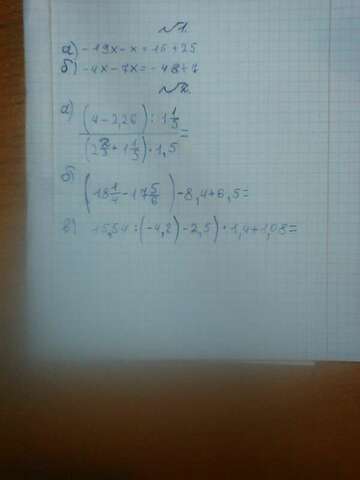 №1.
а) -19x-x=15+25
б) -4x-7x=-48+7
№2.
а) (4-2,26):1 1/5
(2 2/3+1 1/5)·1,5 =
б) (18 1/4-17 5/6)-8,4+6,5=
в) 15,54:(-4,2)-2,5)·1,4+1,08=